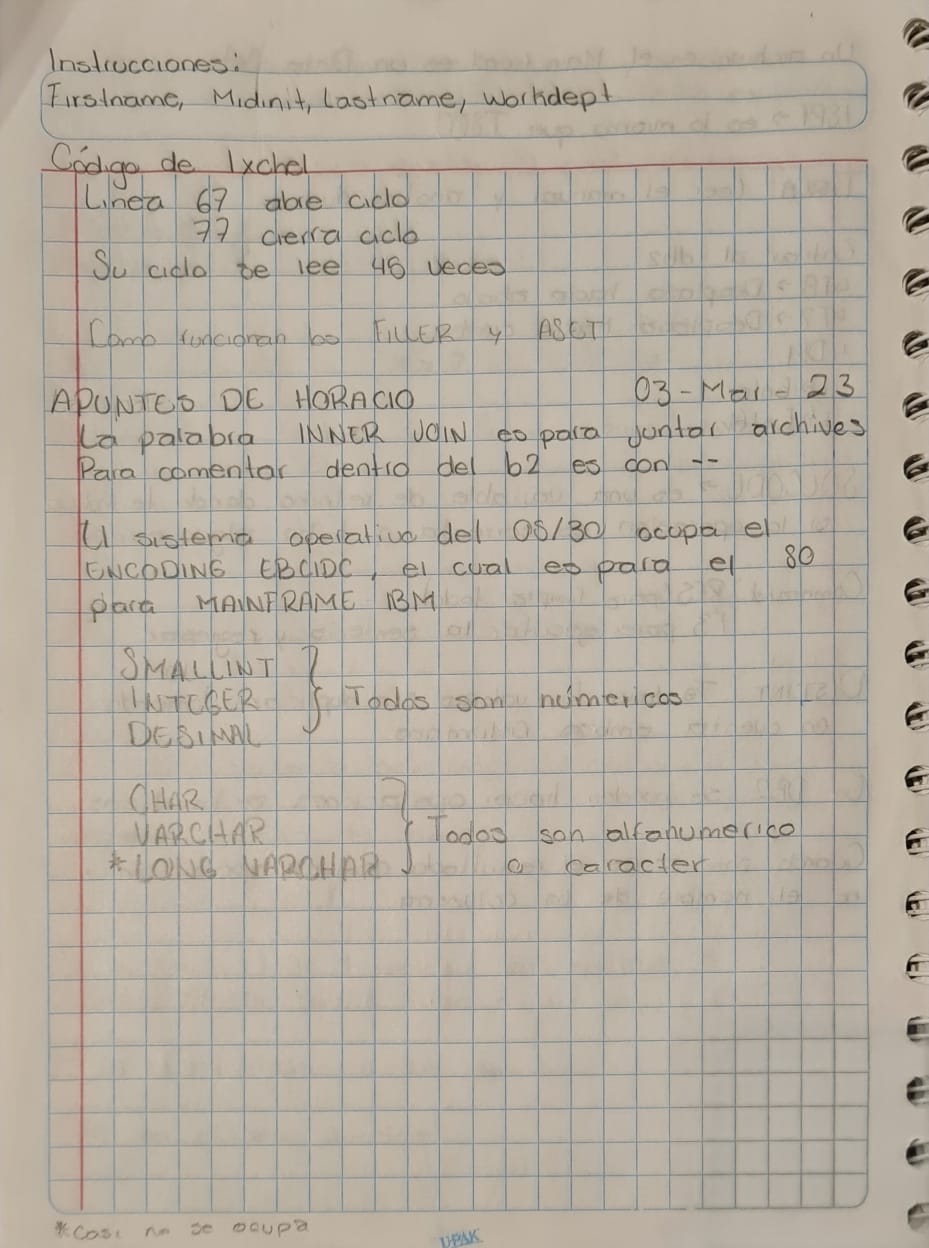 Instrucciones:
Firstname, Midinit, Lastname, Workdept
Código de Ixchel
Linea 67 abre ciclo
77 cierra ciclo
Su ciclo se lee 48 veces
Como funcionan los FILLER y ASET
APUNTES DE HORACIO 03-Mar-23
La palabra INNER JOIN es para juntar archives
Para comentar dentro del b2 es con --
El sistema operativo del OS/30 ocupa el
ENCODING EBCIDC, el cual es para el 80
para MAINFRAME IBM
SMALLINT
INTEGER } Todos son númericos
DESIMAL
CHAR
VARCHAR } Todos son alfanumerico
*LONG VARCHAR o caracter
*Casi no se ocupa
UPAK